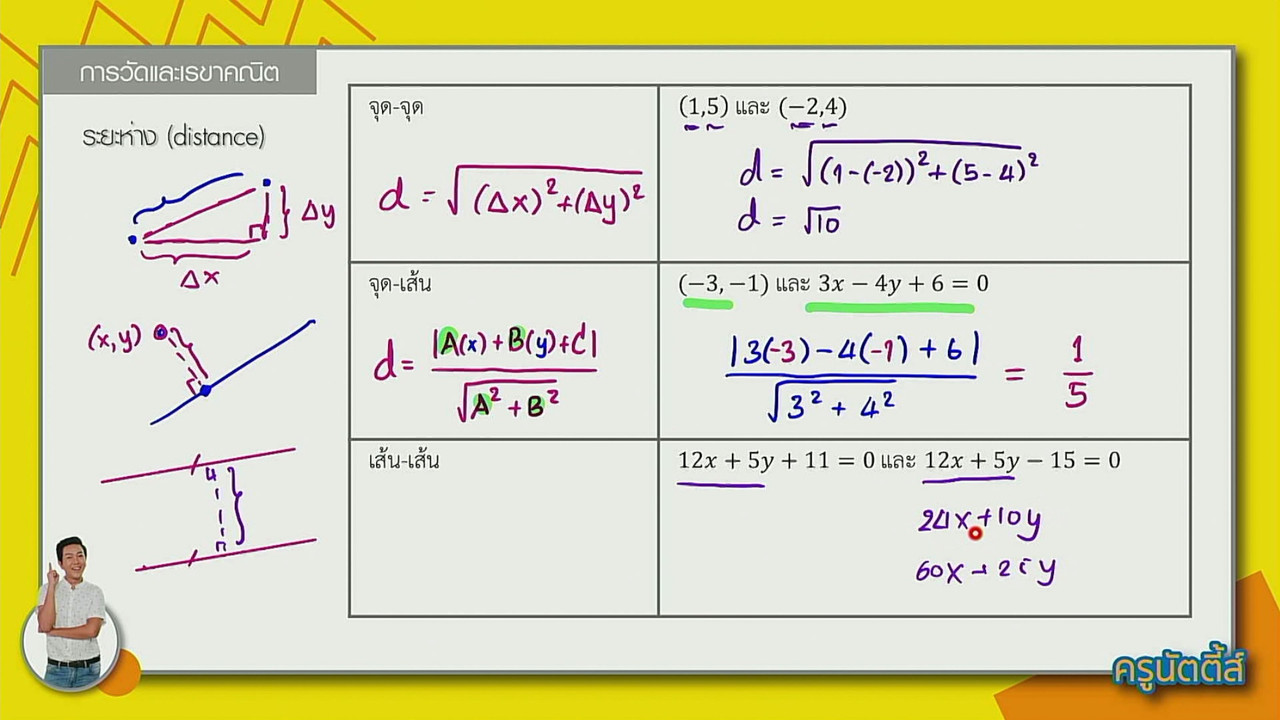 การวัดและเรขาคณิต
ระยะห่าง (distance)
Δy
Δx
(x,y)
จุด-จุด
d = √(Δx)²+(Δy)²
(1,5) และ (−2,4)
d = √(1-(-2))²+(5-4)²
d = √10
จุด-เส้น
d = |A(x)+B(y)+C| / √A²+B²
(−3,−1) และ 3x − 4y + 6 = 0
|3(-3)-4(-1)+6| / √3²+4² = 1/5
เส้น-เส้น
12x + 5y + 11 = 0 และ 12x + 5y − 15 = 0
24x+10y
60x+25y
ครูนัตตี้ส์